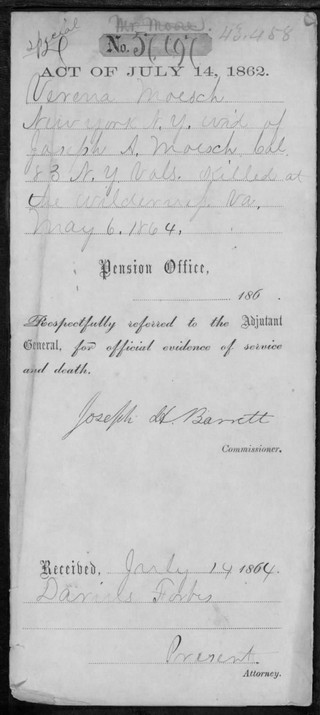 Special
Mr. Moore.
No. 57697
43.458
ACT OF JULY 14, 1862.
Verena Moesch
New York N.Y. wid of
Joseph A. Moesch Col.
83 N.Y Vols. Killed at
the Wilderness, Va.
May 6. 1864.
Pension Office,
186
Respectfully referred to the Adjutant
General, for official evidence of service
and death.
Joseph H Barrett
Commissioner.
Received, July 14 1864.
Forbes
Present.
Attorney.